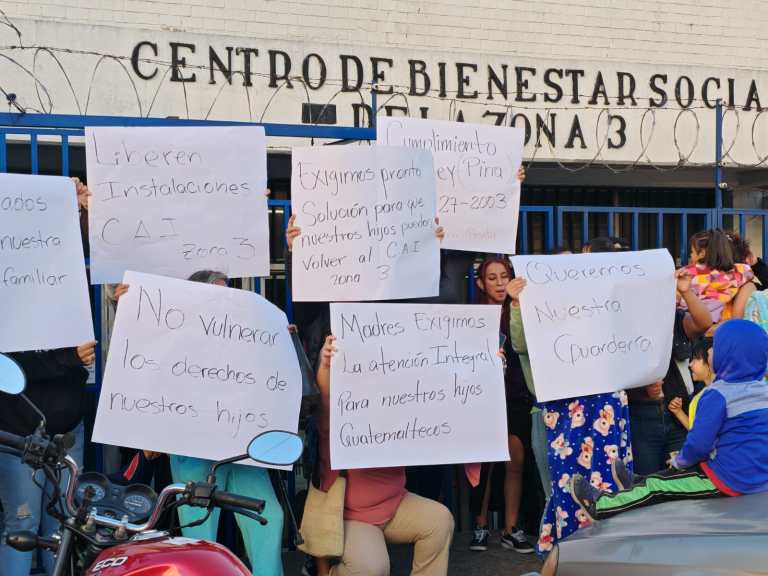 CENTRO DE BIENESTAR SOCIA
DE LA ZONA 3
Liberen
Instalaciones
CAI
Zona 3
Exigimos pronto
Solución para que
nuestros hijos puedan
Volver al CAI
zona 3
Cumplimiento
ey (Pina)
27-2003
ados
nuestra
familiar
No vulnerar
los derechos de
nuestros hijos
Madres Exigimos
La atención Integral
para nuestros hijos
Guatemaltecos
Queremos
Nuestra
Guardería
ECO